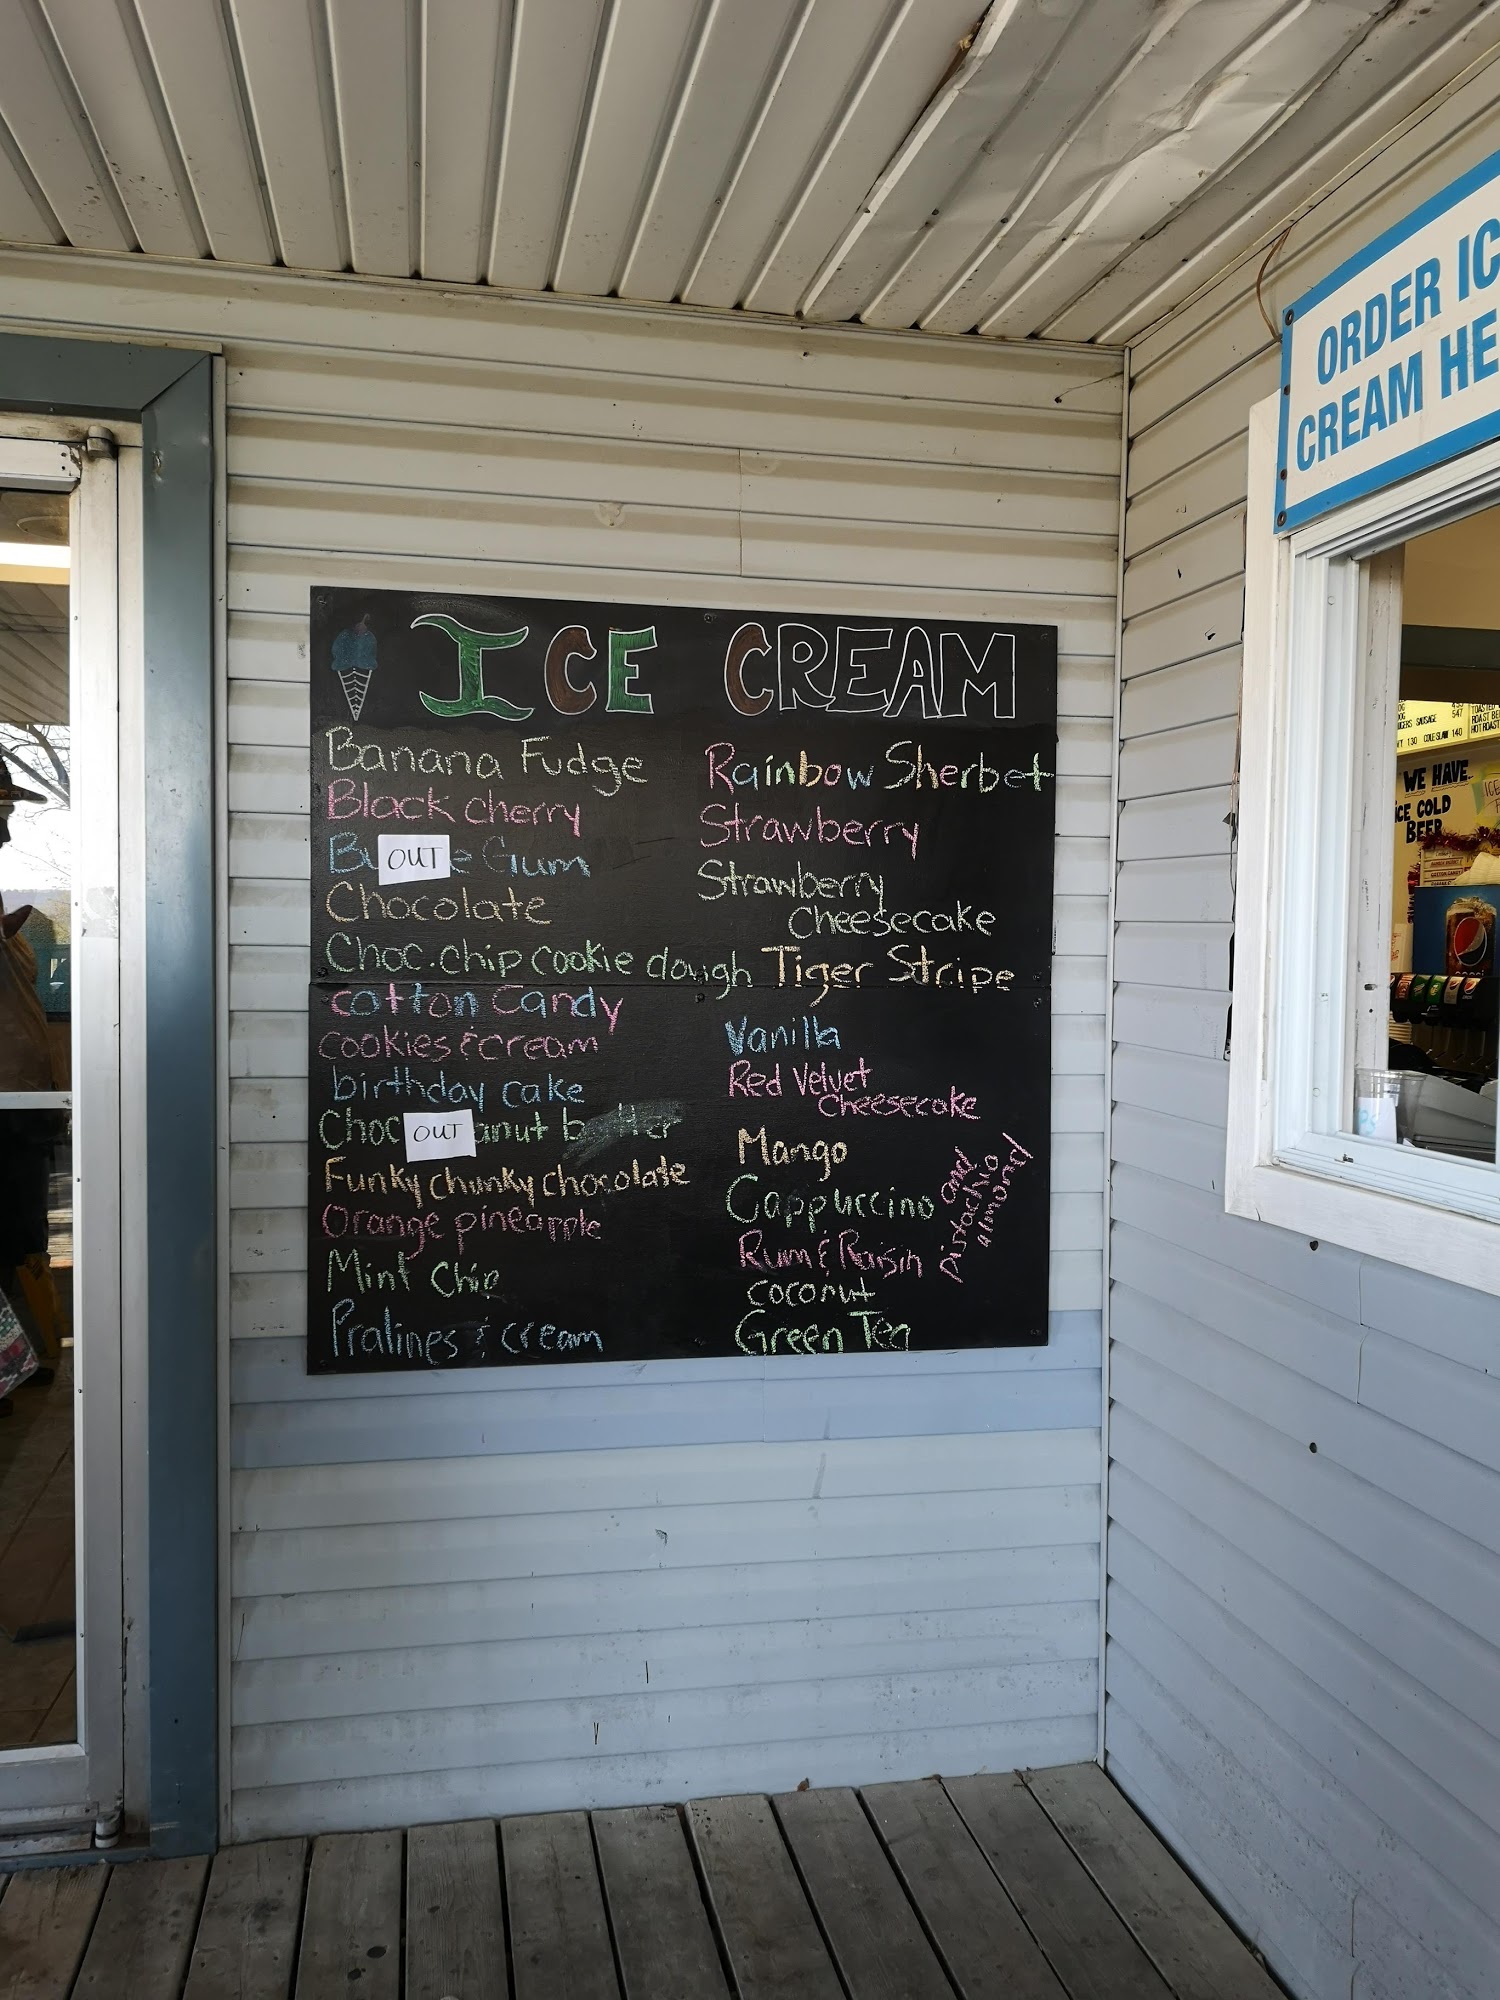 ICE CREAM
Banana Fudge
Black cherry
OUT
Gum
Chocolate
Choc. chip cookie dough
Cotton Candy
cookies & cream
birthday cake
Choc
OUT
Funky chunky chocolate
Orange pineapple
Mint Chip
Pralines & cream
Rainbow Sherbet
Strawberry
Strawberry
Cheesecake
Tiger Stripe
Vanilla
Red Velvet
Cheesecake
Mango
Cappuccino
Rum & Raisin
coconut
Green Tea
pistachio and
almond
ORDER IC
CREAM HE
WE HAVE
ICE COLD
BEER